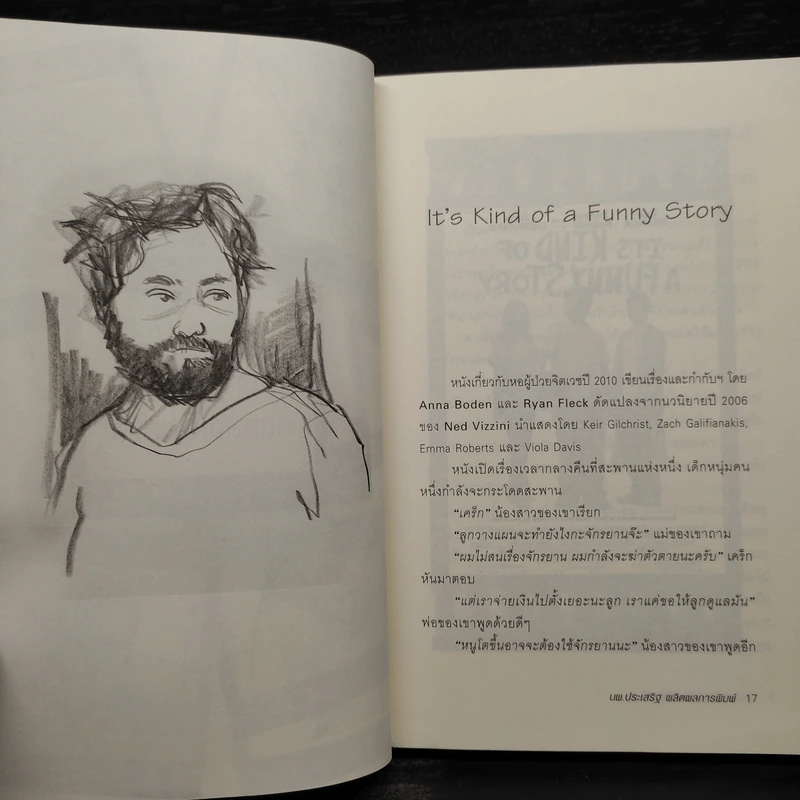 It's Kind of a Funny Story
หนังเกี่ยวกับหอผู้ป่วยจิตเวชปี 2010 เขียนเรื่องและกำกับฯ โดย
Anna Boden และ Ryan Fleck ดัดแปลงจากนวนิยายปี 2006
ของ Ned Vizzini นำแสดงโดย Keir Gilchrist, Zach Galifianakis,
Emma Roberts และ Viola Davis
หนังเปิดเรื่องเวลากลางคืนที่สะพานแห่งหนึ่ง เด็กหนุ่มคน
หนึ่งกำลังจะกระโดดสะพาน
“เคร็ก” น้องสาวของเขาเรียก
“ลูกวางแผนจะทำยังไงกะจักรยานจ๊ะ” แม่ของเขาถาม
“ผมไม่สนเรื่องจักรยาน ผมกำลังจะฆ่าตัวตายนะครับ” เคร็ก
หันมาตอบ
“แต่เราจ่ายเงินไปตั้งเยอะนะลูก เราแค่ขอให้ลูกดูแลมัน”
พ่อของเขาพูดด้วยดีๆ
“หนูโตขึ้นอาจจะต้องใช้จักรยานนะ” น้องสาวของเขาพูดอีก
นพ.ประเสริฐ ผลิตผลการพิมพ์ 17